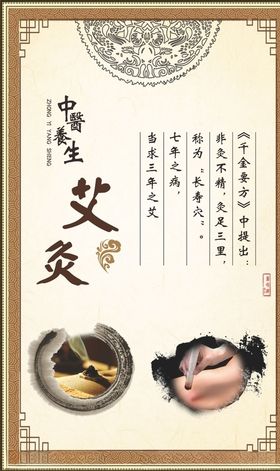 中醫養生
ZHONG YI YANG SHENG
艾灸
《千金要方》中提出：
非灸不精，灸足三里，
称为“长寿穴”。
七年之病，
当求三年之艾